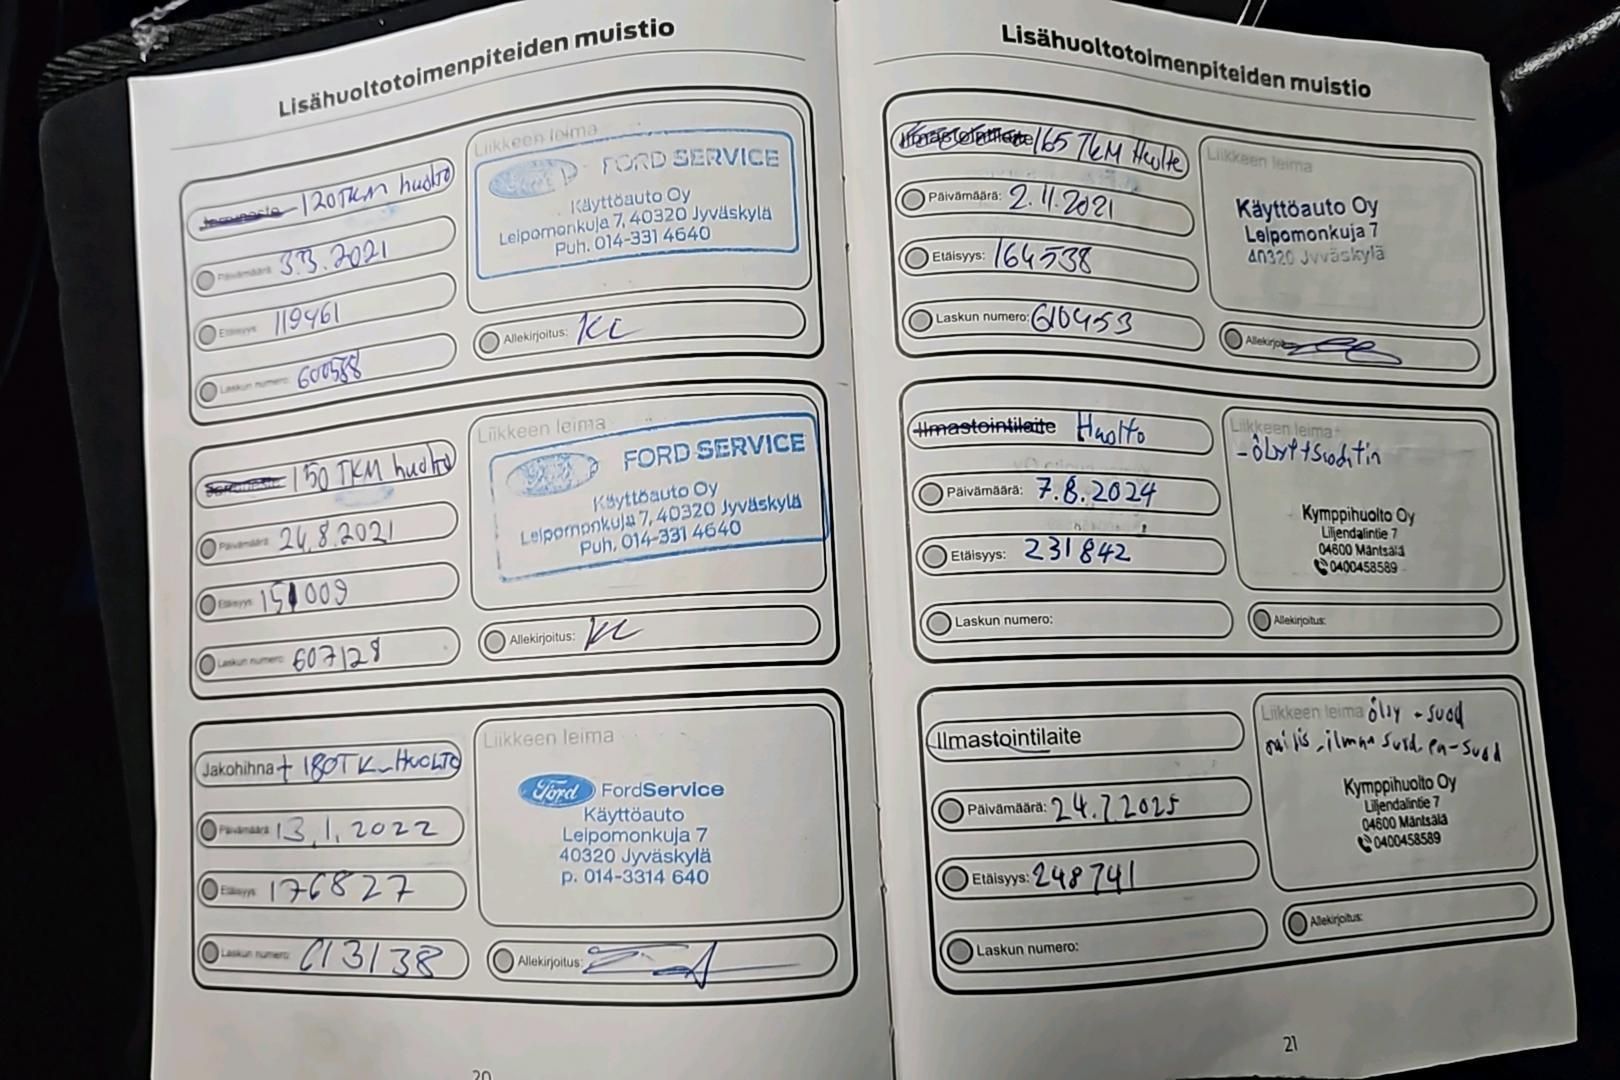 Lisähuoltotoimenpiteiden muistio
120TKM huolto
Päivämäärä: 3.3.2021
Etäisyys: 119461
Laskun numero: 600588
Liikkeen leima
Ford FORD SERVICE
Käyttöauto Oy
Leipomonkuja 7, 40320 Jyväskylä
Puh. 014-331 4640
Allekirjoitus: KL
150 TKM huolto
Päivämäärä: 24.8.2021
Etäisyys: 151009
Laskun numero: 607128
Liikkeen leima
Ford FORD SERVICE
Käyttöauto Oy
Leipomonkuja 7, 40320 Jyväskylä
Puh. 014-331 4640
Allekirjoitus: KL
Jakohihna + 180TK-HUOLTO
Päivämäärä: 13.1.2022
Etäisyys: 176827
Laskun numero: 613138
Liikkeen leima
Ford FordService
Käyttöauto
Leipomonkuja 7
40320 Jyväskylä
p. 014-3314 640
Allekirjoitus:
20
Lisähuoltotoimenpiteiden muistio
Ilmastointilaite 165 TKM Huolto
Päivämäärä: 2.11.2021
Etäisyys: 164538
Laskun numero: 610453
Liikkeen leima
Käyttöauto Oy
Leipomonkuja 7
40320 Jyväskylä
Allekirjoitus:
Ilmastointilaite Huolto
Päivämäärä: 7.8.2024
Etäisyys: 231842
Laskun numero:
Liikkeen leima
- Öljyt+suodatin
Kymppihuolto Oy
Liljendalintie 7
04600 Mäntsälä
0400458589
Allekirjoitus:
Ilmastointilaite
Päivämäärä: 24.7.2025
Etäisyys: 248741
Laskun numero:
Liikkeen leima öljy + suod
Kymppihuolto Oy
Liljendalintie 7
04600 Mäntsälä
0400458589
Allekirjoitus:
21